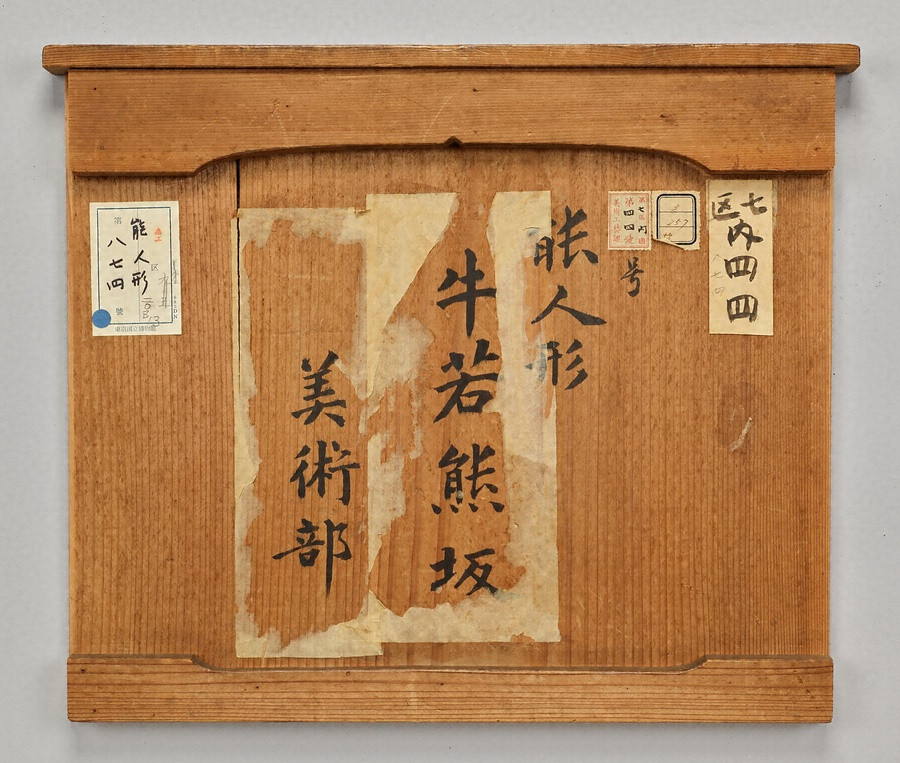 七
区
内
四
四
第七区内
第四四号
美術工芸課
号
能人形
牛若熊坂
美術部
能人形
区
第八七四號
東京国立博物館